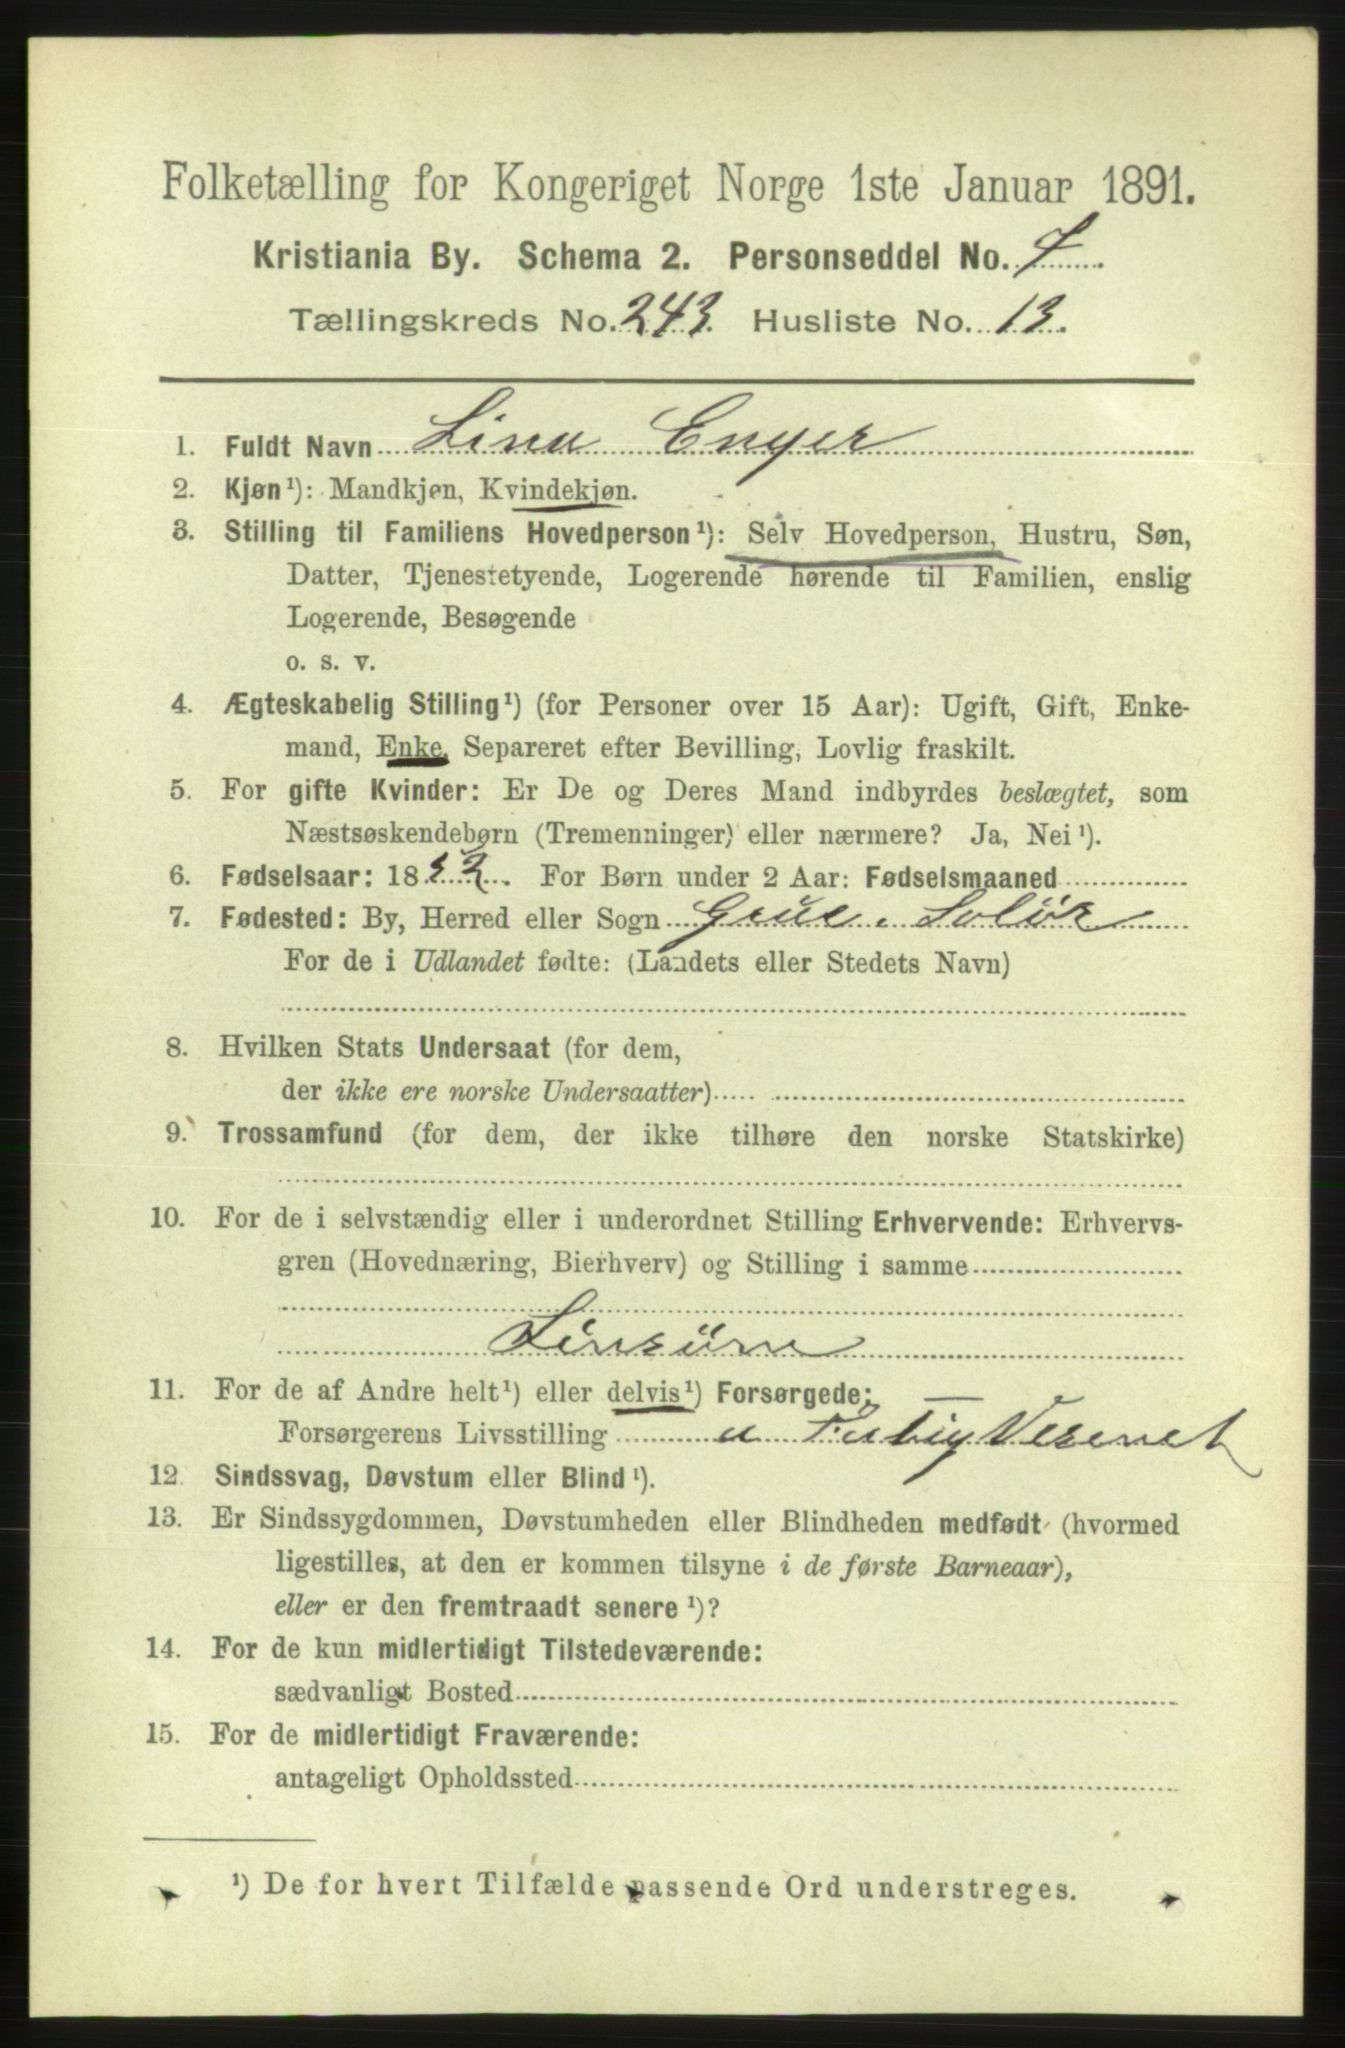 Folketælling for Kongeriget Norge 1ste Januar 1891.
Kristiania By. Schema 2. Personseddel No. 7
Tællingskreds No. 243. Husliste No. 13.
1. Fuldt Navn Lina Enger
2. Kjøn¹): Mandkjøn, Kvindekjøn.
3. Stilling til Familiens Hovedperson¹): Selv Hovedperson, Hustru, Søn,
Datter, Tjenestetyende, Logerende hørende til Familien, enslig
Logerende, Besøgende
o. s. v.
4. Ægteskabelig Stilling¹) (for Personer over 15 Aar): Ugift, Gift, Enke-
mand, Enke, Separeret efter Bevilling, Lovlig fraskilt.
5. For gifte Kvinder: Er De og Deres Mand indbyrdes beslægtet, som
Næstsøskendebørn (Tremenninger) eller nærmere? Ja, Nei¹).
6. Fødselsaar: 1852. For Børn under 2 Aar: Fødselsmaaned
7. Fødested: By, Herred eller Sogn Grue. Solör
For de i Udlandet fødte: (Landets eller Stedets Navn)
8. Hvilken Stats Undersaat (for dem,
der ikke ere norske Undersaatter)
9. Trossamfund (for dem, der ikke tilhøre den norske Statskirke)
10. For de i selvstændig eller i underordnet Stilling Erhvervende: Erhvervs-
gren (Hovednæring, Bierhverv) og Stilling i samme
11. For de af Andre helt¹) eller delvis¹) Forsørgede:
Forsørgerens Livsstilling a Fattig Vesenet
12. Sindssvag, Døvstum eller Blind¹).
13. Er Sindssygdommen, Døvstumheden eller Blindheden medfødt (hvormed
ligestilles, at den er kommen tilsyne i de første Barneaar),
eller er den fremtraadt senere¹)?
14. For de kun midlertidigt Tilstedeværende:
sædvanligt Bosted
15. For de midlertidigt Fraværende:
antageligt Opholdssted
¹) De for hvert Tilfælde passende Ord understreges.